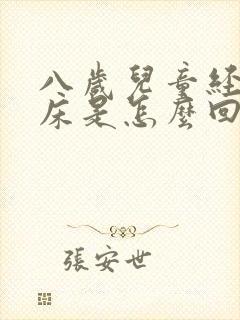 八歲兒童經
床是怎麼回
張安世